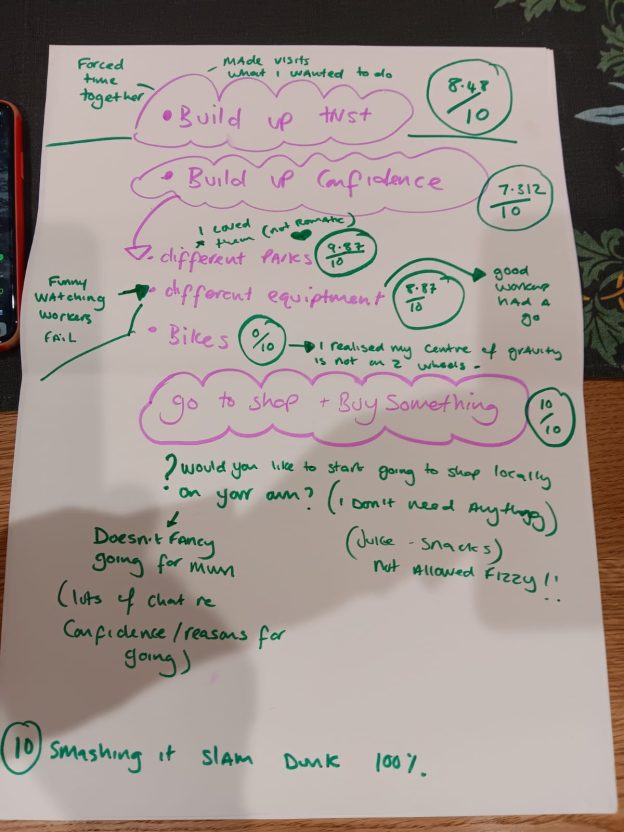 Forced
time
together
MADE VISITS
what I wanted to do
• Build up trust
8.48/10
• Build up Confidence
7.312/10
I loved (not romatic)
them
• different Parks
9.87/10
Funny
WATCHING
workers
FAIL
• different equiptment
8.87/10
good
workers
HAD A
go
• Bikes
0/10
I realised my centre of gravity
is not on 2 wheels.
go to shop + Buy Something
10/10
? Would you like to start going to shop locally
on your own? (I Don't need Anything)
Doesn't fancy
going for mum
(Juice - Snacks)
not Allowed FIZZY!!
(lots of chat re
Confidence/reasons for
going)
10 Smashing it SLAM DUNK 100%.